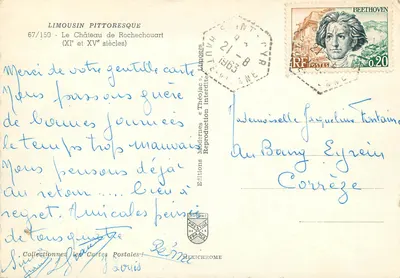 LIMOUSIN PITTORESQUE
67/150 - Le Château de Rochechouart
(XIe et XVe siècles)
Merci de votre gentille carte
Nous passons guère
de bonnes journées
le temps trop mauvais
Nous pensons déjà
au retour ..... bien à
regret. Amicales pensées
de tous quatre
Louis
Rémi
Collectionnez les Cartes Postales !
Editions Modernes « Théojac » Limoges
Reproduction interdite
21-8
1963
RF
POSTES
BEETHOVEN
0,20
Mademoiselle Jacqueline Fontaine
au Bourg Eyrein
Corrèze